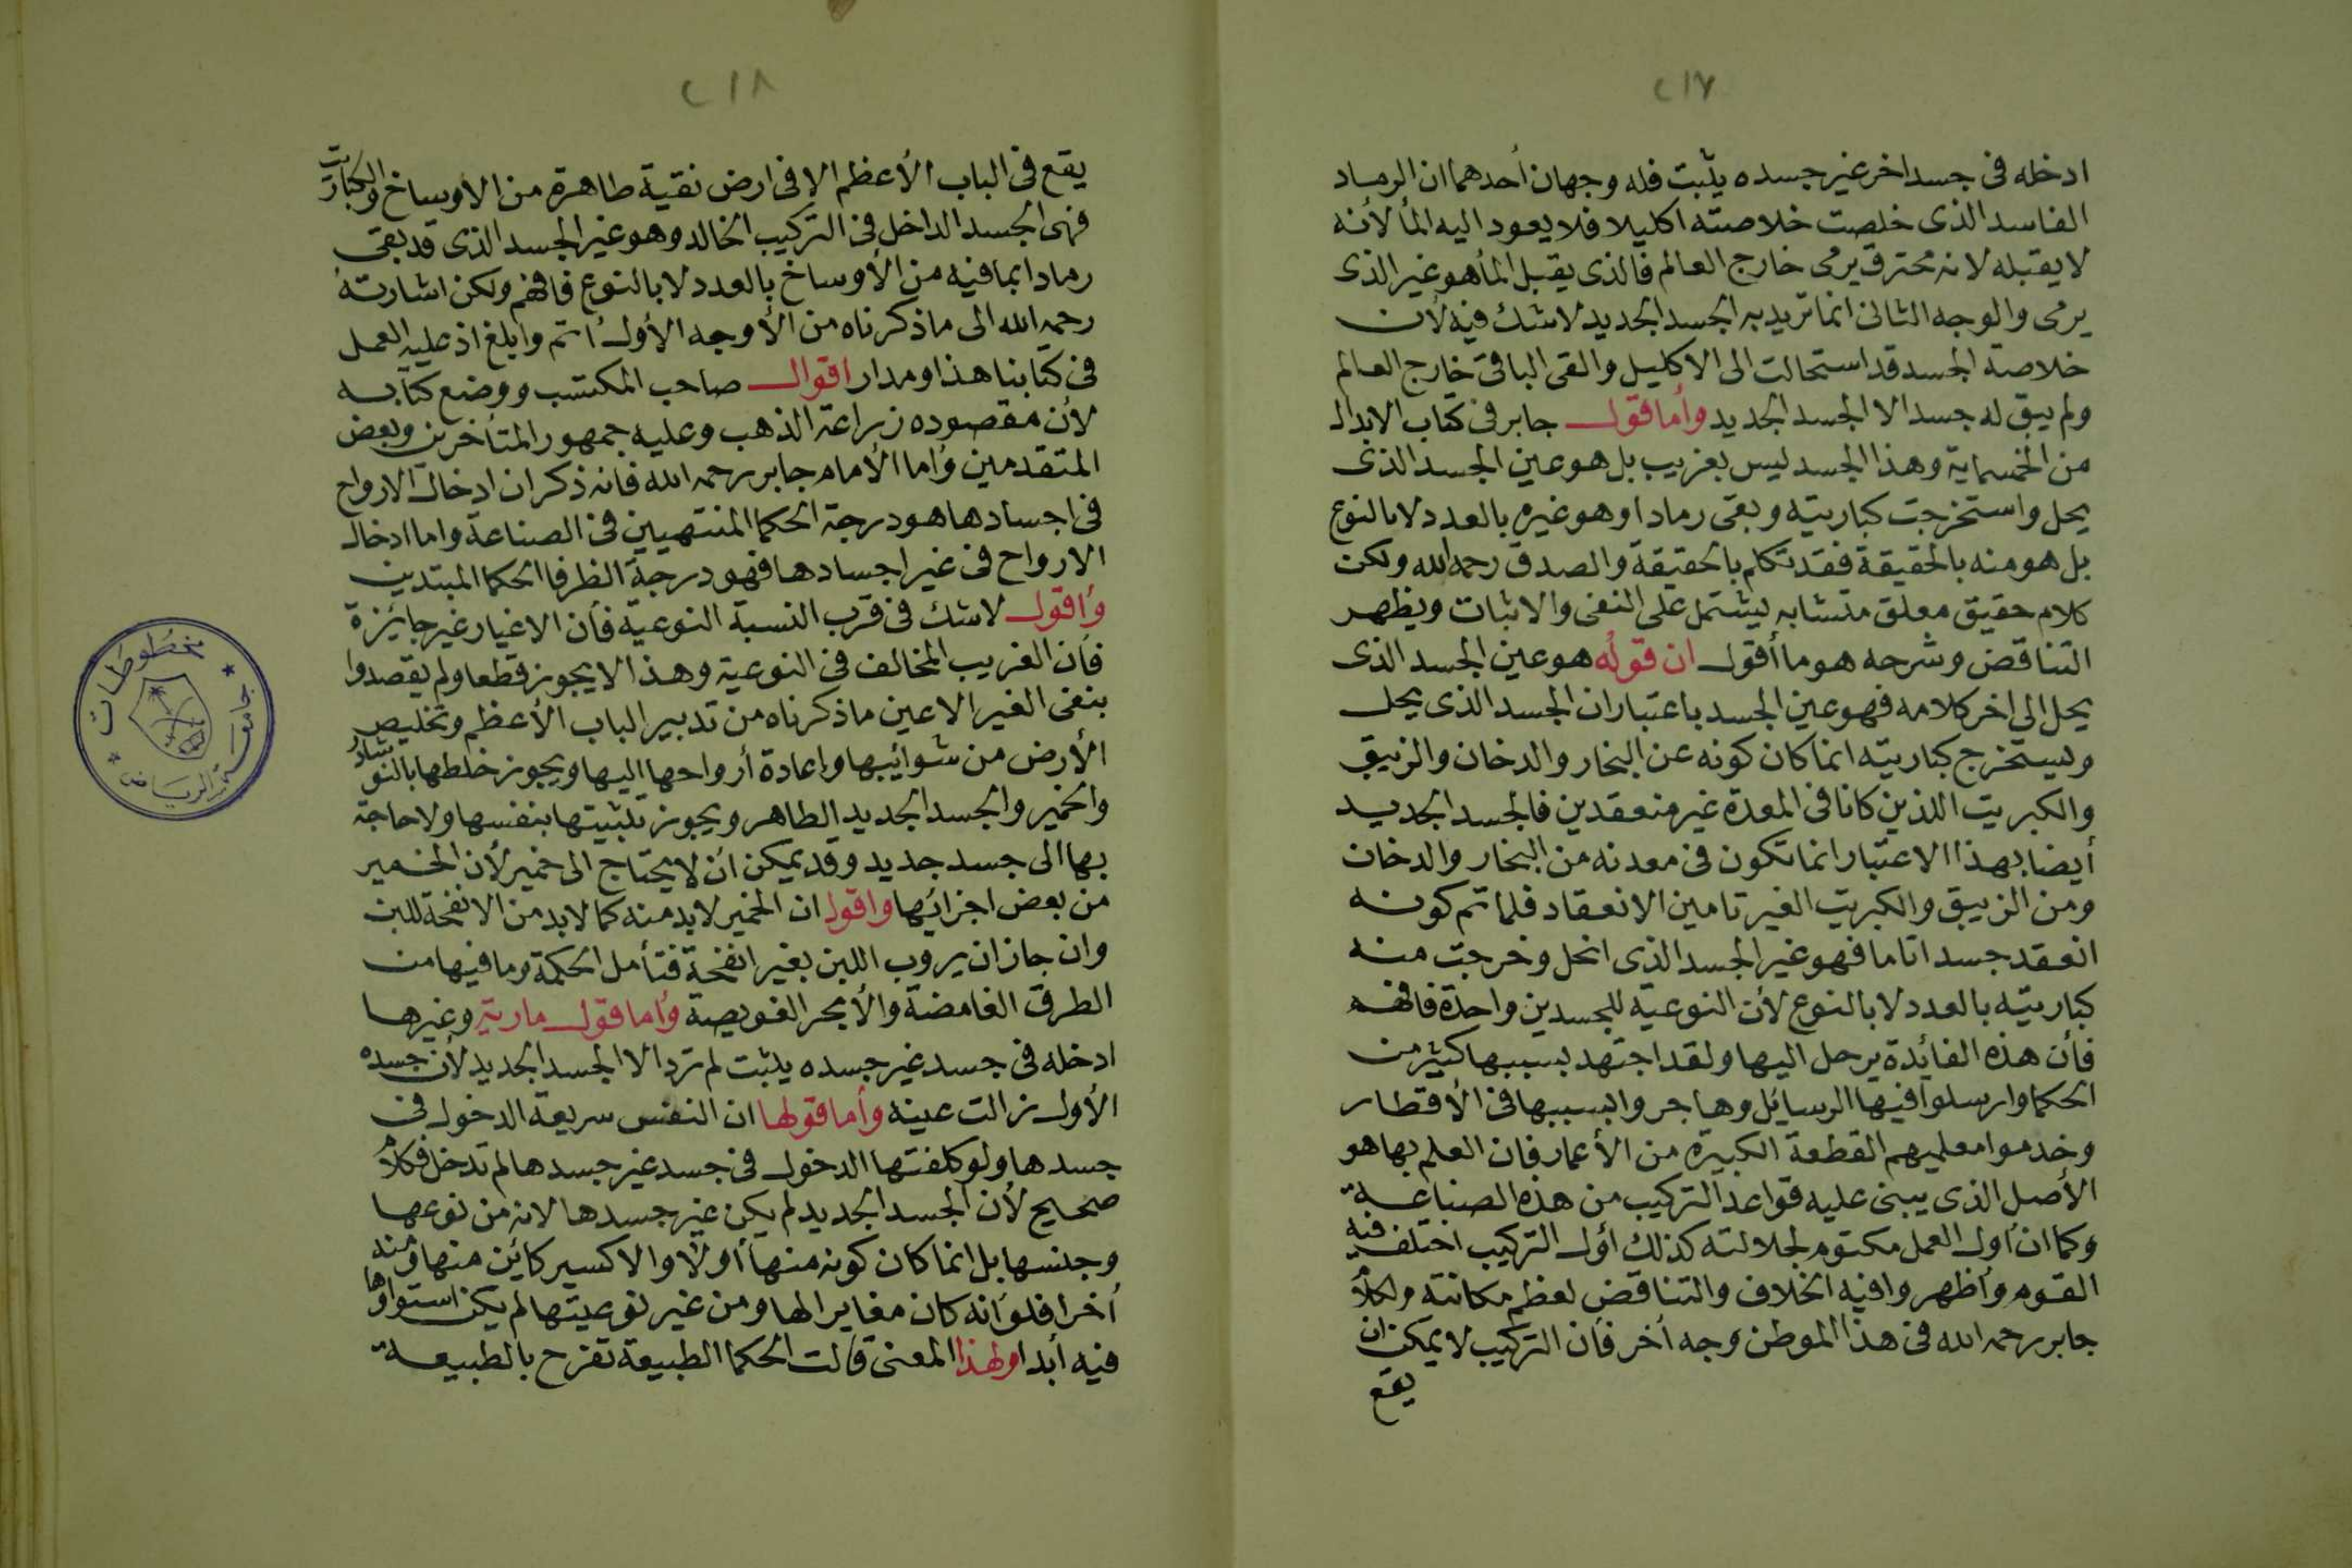 ٢١٧
ادخله فى جسد اخر غير جسده يثبت فله وجهان أحدهما ان الرماد
الفاسد الذى خلصت خلاصته اكليلا فلا يعود اليه المأ لأنه
لا يقبله لانه محترق يرمى خارج العالم فالذى يقبل المأ هو غير الذى
يرمى والوجه الثانى انما تريد به الجسد الجديد لا شك فيه لأن
خلاصة الجسد قد استحالت الى الاكليل والقى الباقى خارج العالم
ولم يبق له جسد الا الجسد الجديد وأما قول جابر فى كتاب الابدال
من الخمسماية وهذا الجسد ليس بغريب بل هو عين الجسد الذى
يحل واستخرجت كباريته وبقى رمادا وهو غيره بالعدد لا بالنوع
بل هو منه بالحقيقة فقد تكلم بالحقيقة والصدق رحمه الله ولكن
كلام حقيق معلق متشابه ليشتمل على النفى والاثبات ويظهر
التناقض وشرحه هو ما أقول ان قوله هو عين الجسد الذى
يحل الى اخر كلامه فهو عين الجسد باعتبار ان الجسد الذى يحل
وليستخرج كباريته انما كان كونه عن البخار والدخان والزيبق
والكبريت اللذين كانا فى المعدة غير منعقدين فالجسد الجديد
أيضا بهذا الاعتبار انما تكون فى معدنه من البخار والدخان
ومن الزيبق والكبريت الغير تامين الانعقاد فلما تم كونه
انعقد جسدا تاما فهو غير الجسد الذى انحل وخرجت منه
كباريته بالعدد لا بالنوع لأن النوعية للجسدين واحدة فافهم
فأن هذه الفائدة يرحل اليها ولقد اجتهد بسببها كثير من
الحكما وارسلوا فيها الرسائل وهاجروا بسببها فى الأقطار
وخدموا معلميهم القطعة الكبيرة من الأعمار فان العلم بها هو
الأصل الذى يبنى عليه قواعد التركيب من هذه الصناعة
وكما أن أول العمل مكتوم لجلالته كذلك أول التركيب اختلف فيه
القوم وأظهروا فيه الخلاف والتناقض لعظم مكانته ولكلام
جابر رحمه الله فى هذا الموطن وجه أخر فأن التركيب لا يمكن ان
يقع
٢١٨
يقع فى الباب الأعظم الا فى ارض نقية طاهرة من الاوساخ والكباريت
فهى الجسد الداخل فى التركيب الخالد وهو غير الجسد الذى قد بقى
رمادا بما فيه من الأوساخ بالعدد لا بالنوع فافهم ولكن اشارته
رحمه الله الى ما ذكرناه من الأوجه الأول أتم وابلغ اذ عليه العمل
فى كتابنا هذا ومدار اقوال صاحب المكتسب ووضع كتابه
لأن مقصوده زراعة الذهب وعليه جمهور المتأخرين وبعض
المتقدمين وأما الأمام جابر رحمه الله فانه ذكر ان ادخال الارواح
فى اجسادها هو درجة الحكما المنتهيين فى الصناعة واما ادخال
الارواح فى غير اجسادها فهو درجة الظرفا الحكما المبتدين
وأقول لا شك فى قرب النسبة النوعية فأن الاغيار غير جائزة
فأن الغريب المخالف فى النوعية وهذا لا يجوز قطعا ولم يقصدوا
بنفى الغير الا عين ما ذكرناه من تدبير الباب الأعظم وتخليص
الأرض من شوائبها واعادة أرواحها اليها ويجوز خلطها بالنوشادر
والخمير والجسد الجديد الطاهر ويجوز تثبيتها بنفسها ولا حاجة
بها الى جسد جديد وقد يمكن ان لا يحتاج الى خمير لأن الخمير
من بعض اجزائها واقول ان الخمير لا بد منه كما لا بد من الانفحة للبن
وان جاز ان يروب اللبن بغير انفحة فتأمل الحكمة وما فيها من
الطرق الغامضة والأبحر الغويصة وأما قول مارية وغيرها
ادخله فى جسد غير جسده يثبت لم ترد الا الجسد الجديد لأن جسده
الأول زالت عينه وأما قولها ان النفس سريعة الدخول فى
جسدها ولو كلفتها الدخول فى جسد غير جسدها لم تدخل فكلام
صحيح لأن الجسد الجديد لم يكن غير جسدها لانه من نوعها
وجنسها بل انما كان كونه منها أولا والاكسير كائن منها ومنه
أخرا فلو أنه كان مغايرا لها ومن غير نوعيتها لم يكن استواؤها
فيه أبدا ولهذا المعنى قالت الحكما الطبيعة تفرح بالطبيعة
مخطوطات
جامعة الرياض